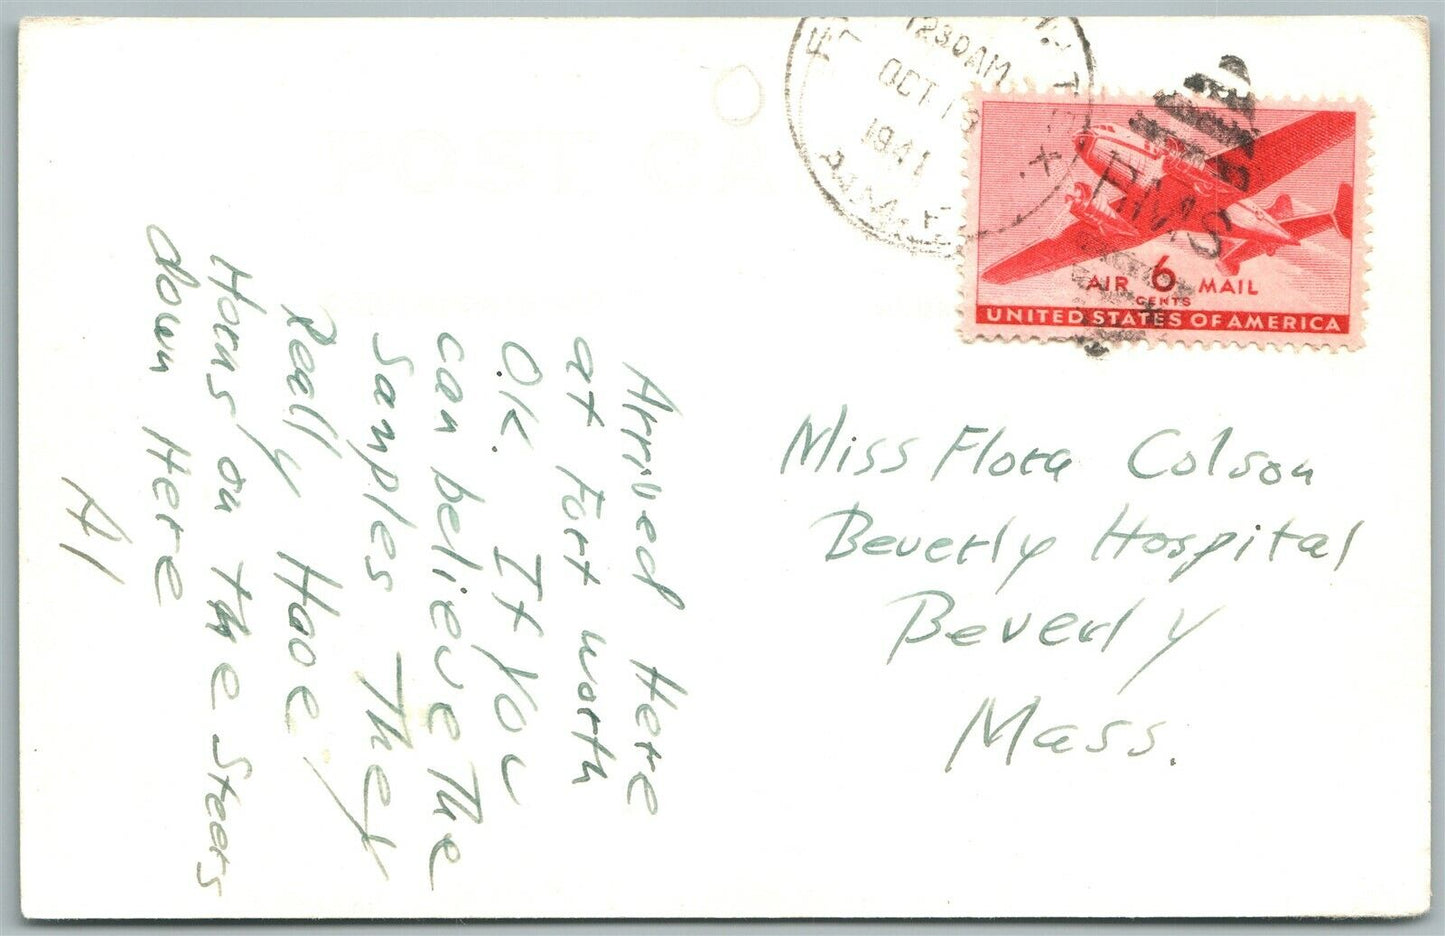 Arrived Here
at Fort worth
O.K. If You
can believe the
Samples They
Really Have
Horns on the Steers
down Here
Al
1230 AM
OCT 13
1941
TEX.
6
AIR MAIL
CENTS
UNITED STATES OF AMERICA
Miss Flora Colson
Beverly Hospital
Beverly
Mass.